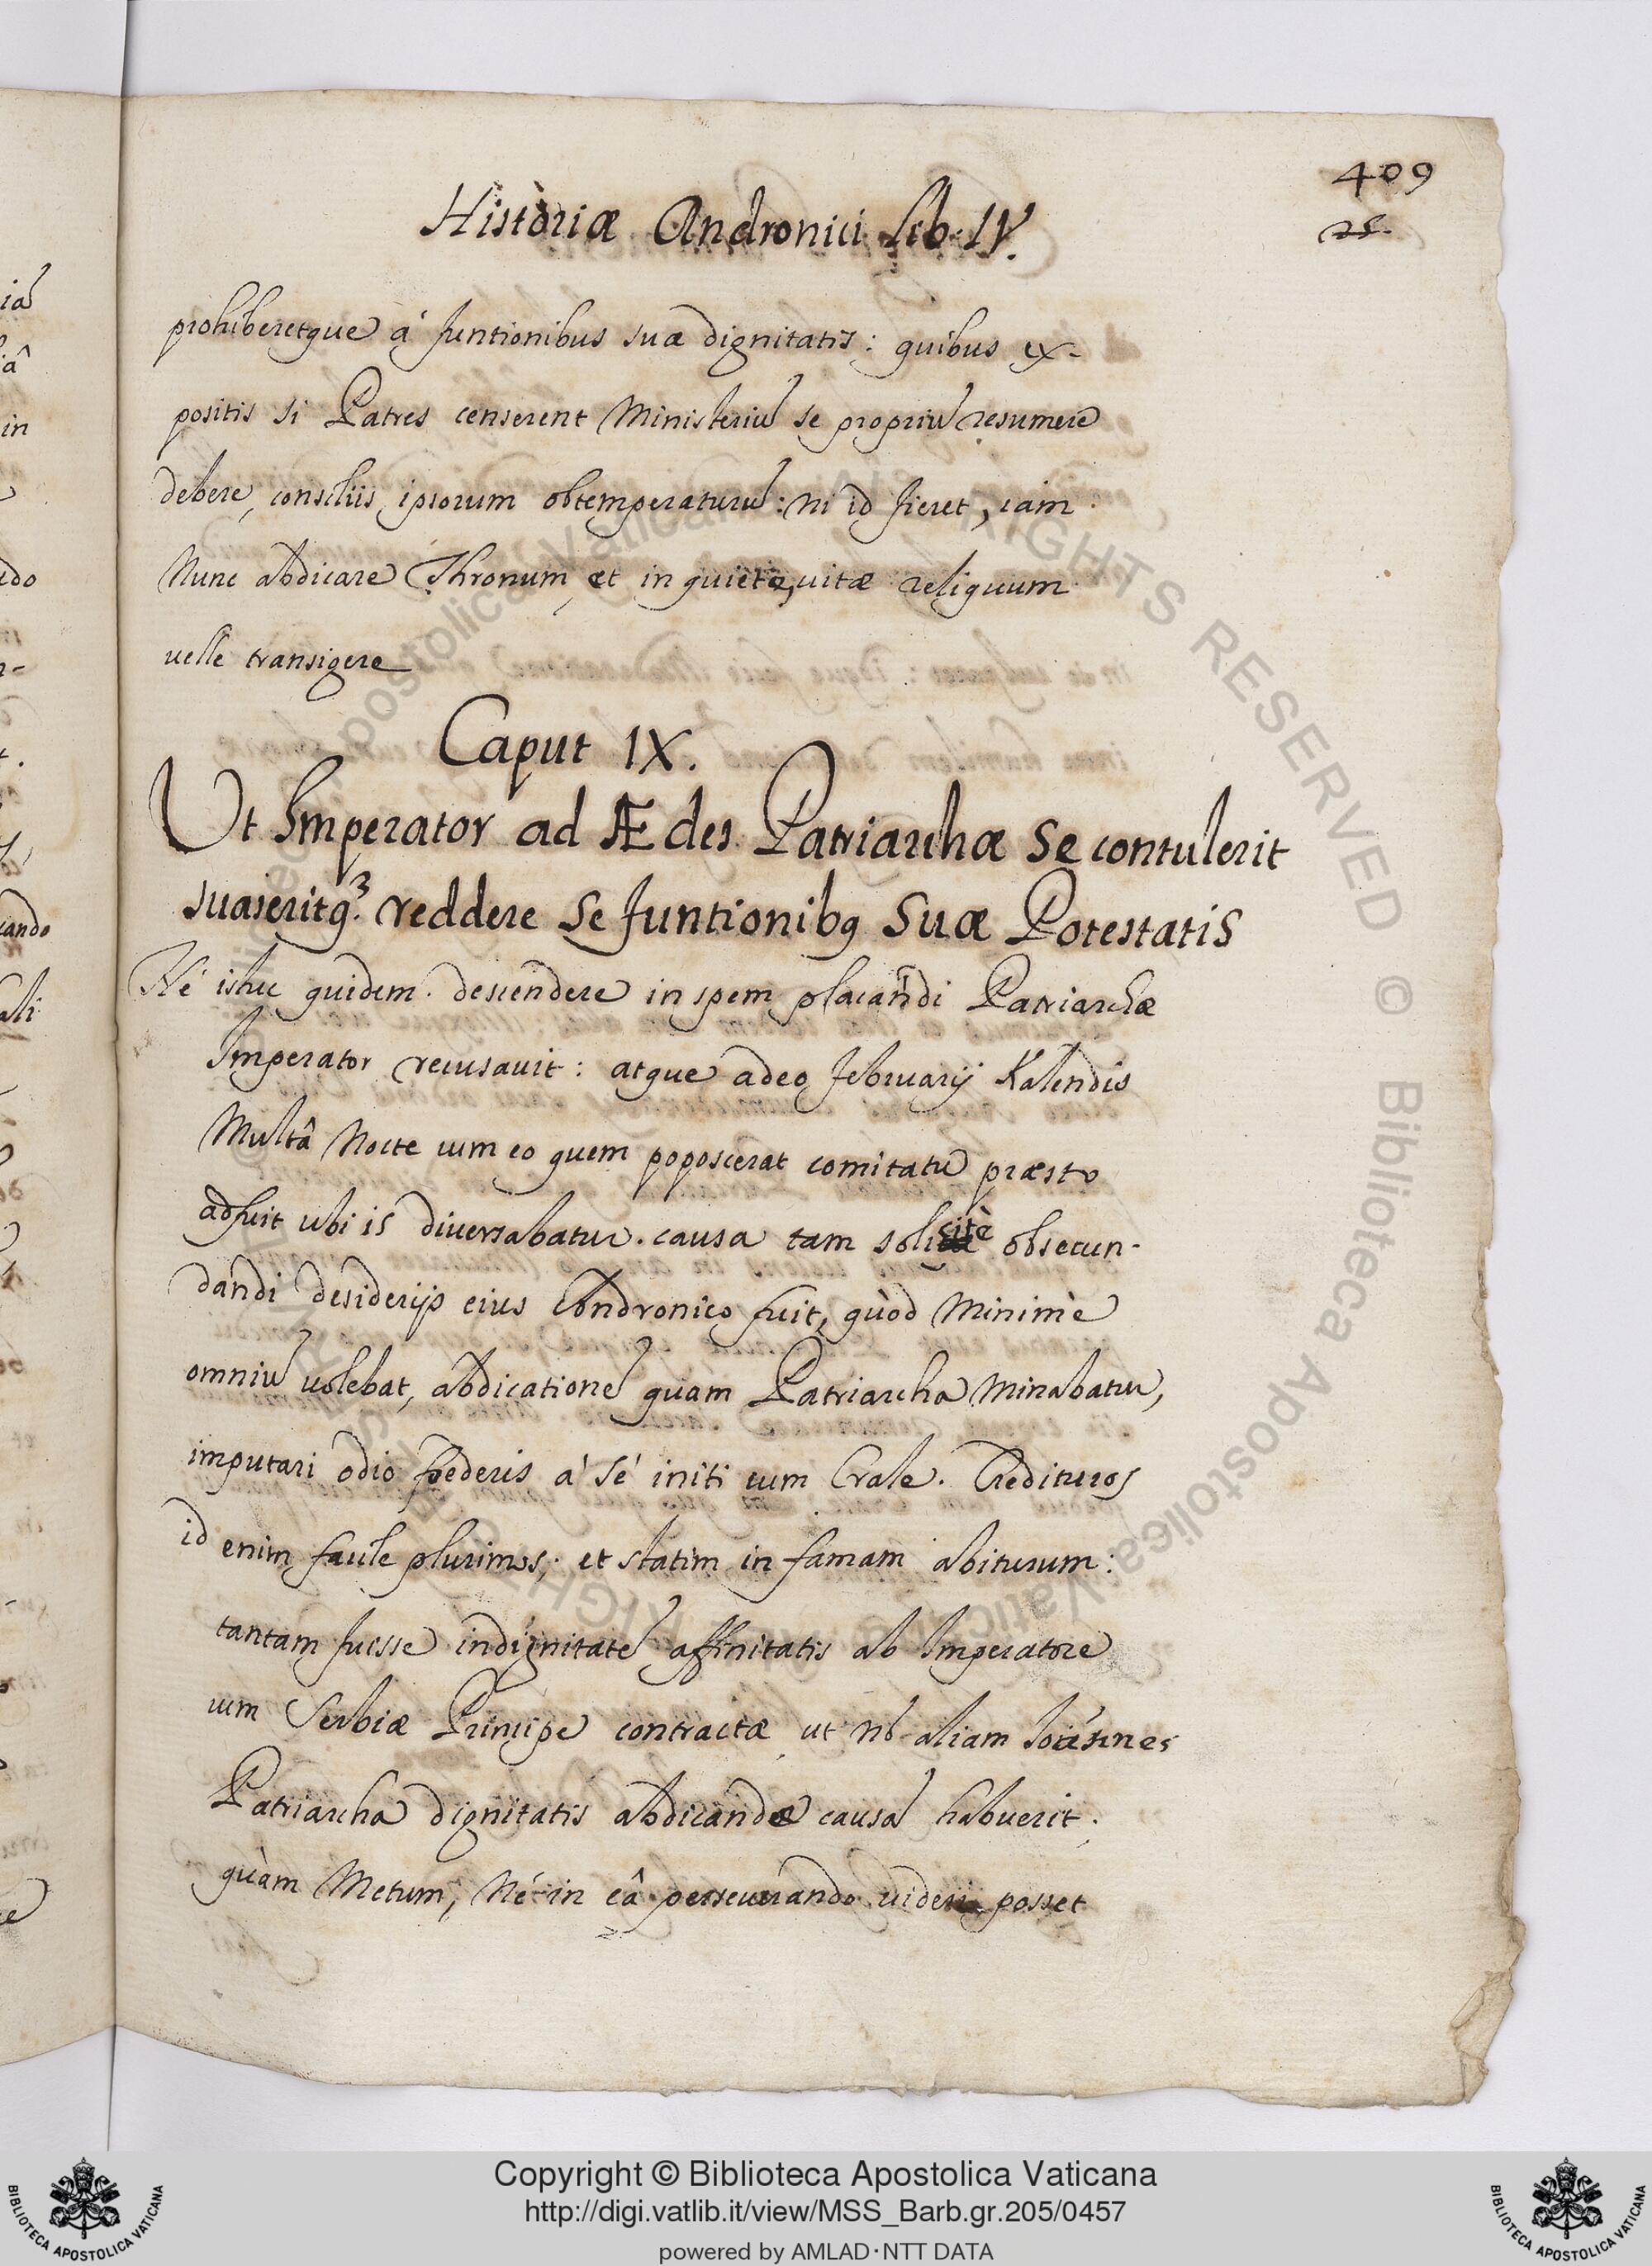 409
25.
Historiæ Andronici Lib. IV.
prohiberetque à functionibus suæ dignitatis: quibus ex-
positis si Patres censerent Ministeriũ se propriũ resumere
debere, consiliis ipsorum obtemperaturũ: ni id fieret, iam
Nunc abdicare Thronum, et in quiete, uitæ reliquum
uelle transigere
Caput IX.
Ut Imperator ad Ædes Patriarchæ se contulerit
suaseritq3. reddere se functionibq suæ Potestatis
Né istuc quidem descendere in spem placandi Patriarchæ
Imperator recusauit: atque adeo februarij Kalendis
Multâ Nocte cum eo quem poposcerat comitatu præsto
adfuit ubi is diversabatur. causa tam solicitè obsecun-
dandi desiderijs eius Andronico fuit, quòd Minimè
omniũ uolebat, abdicationẽ quam Patriarcha Minabatur,
imputari odio fœderis á sé initi cum Crale. Credituros
id enim facile plurimos; et statim in famam abiturum:
tantam fuisse indignitatẽ affinitatis ab Imperatore
cum Serbiæ Principe contractæ ut aliam Ioannes
Patriarcha dignitatis abdicandæ causã habuerit.
quàm Metum, Né in eâ perseuerando uideri posset
Copyright © Biblioteca Apostolica Vaticana
http://digi.vatlib.it/view/MSS_Barb.gr.205/0457
powered by AMLAD·NTT DATA